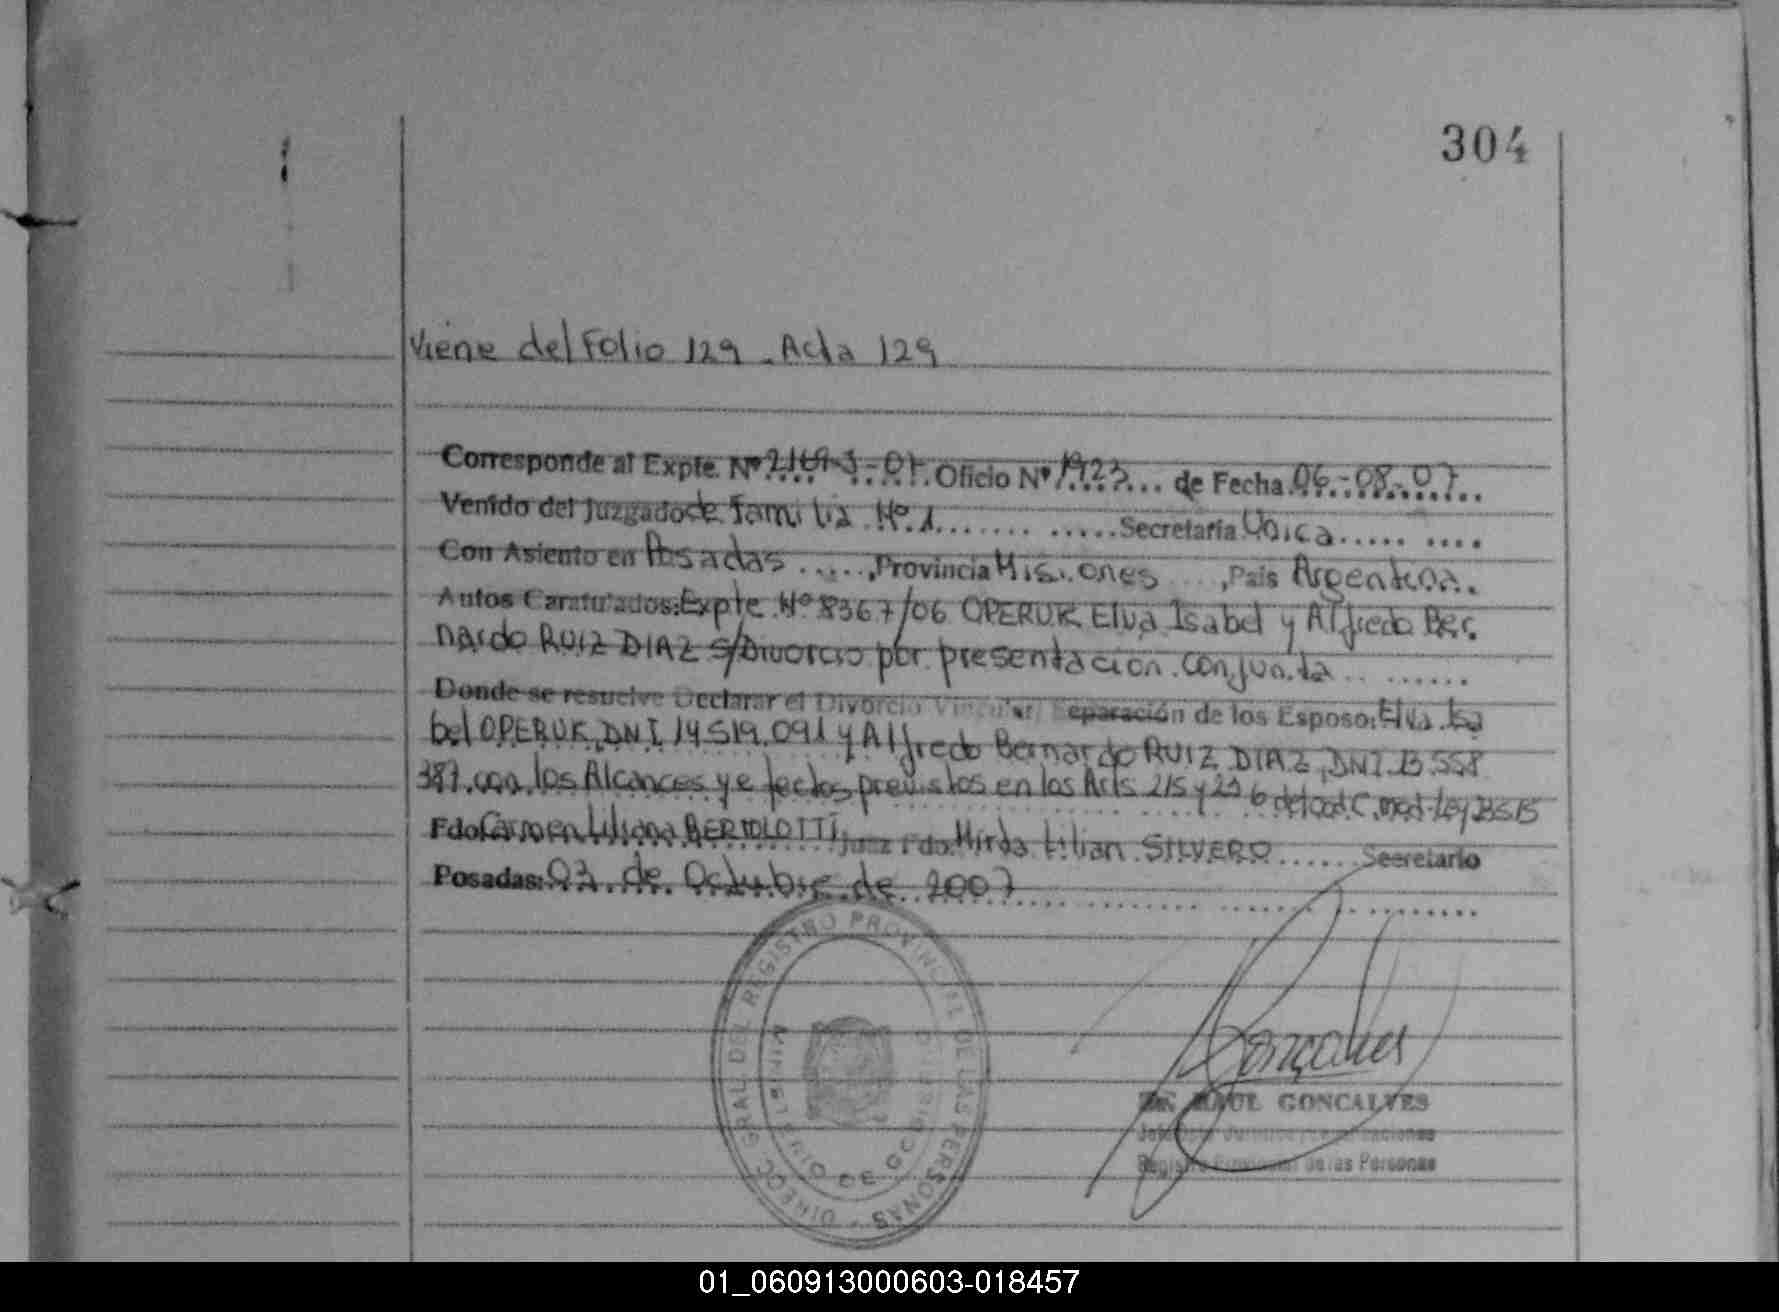 304
Viene del Folio 129 . Acta 129
Corresponde al Expte. Nº Oficio Nº 1923 de Fecha 06-08-07
Venido del Juzgado de Familia Nº 1 Secretaria Unica
Con Asiento en Posadas , Provincia Misiones , Pais Argentina.
Autos Caratulados: Expte Nº 8367/06 OPERUK Elva Isabel y Alfredo Ber
nardo RUIZ DIAZ S/Divorcio por presentación conjunta
Donde se resuelve Declarar el Divorcio Vincular Separación de los Esposo: Elva Isa
bel OPERUK, DNI 14.519.091 y Alfredo Bernardo RUIZ DIAZ, DNI 13.558
387 con los Alcances y efectos previstos en los Arts 215 y 236 del Cod. C. mod. Ley 23515
Fdo Carmen Liliana BERTOLOTTI, Juez Fdo. Mirda Lilian SILVERO Secretario
Posadas: 03 de Octubre de 2007
DIREC. GRAL. DEL REGISTRO PROVINCIAL DE LAS PERSONAS
MINISTERIO DE GOBIERNO
Goncalves
RAUL GONCALVES
Registro Provincial de las Personas
01_060913000603-018457